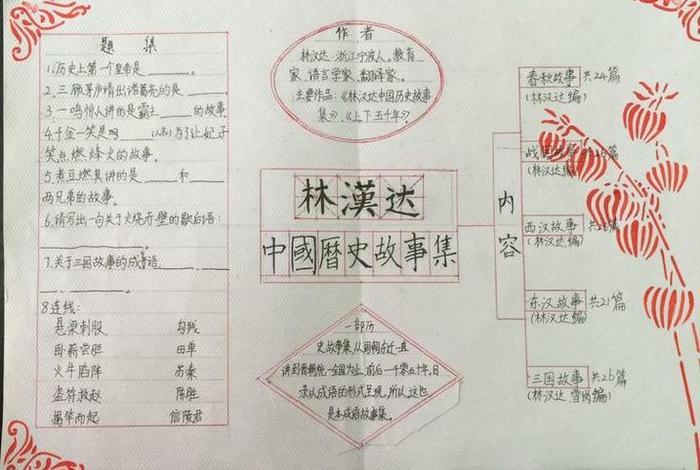 题 集
1.历史上第一个皇帝是________。
2.三顾茅庐请出诸葛亮的是________。
3.一鸣惊人讲的是霸主______的故事。
4.千金一笑是 ______(人名)为了让妃子
笑点燃烽火的故事。
5.煮豆燃萁讲的是______和______
两兄弟的故事。
6.请写出一句关于火烧赤壁的歇后语:
7.关于三国故事的成语
8.连线:
悬梁刺股 勾践
卧薪尝胆 田单
火牛陷阵 苏秦
盗符救赵 陈胜
揭竿而起 信陵君
作者
林汉达,浙江宁波人。教育
家、语言学家、翻译家。
主要作品:《林汉达中国历史故事
集》、《上下五千年》。
林漢达
中國曆史故事集
一部历
史故事集,从 一直
讲到晋朝统一全国为止,前后一千零五十年,目
录以成语的形式呈现,所以,这也
是本成语故事集。
内容
春秋故事 共24篇
(林汉达编)
战国故事 篇
(林汉达编)
西汉故事 共 篇
(林汉达编)
东汉故事 共21篇
(林汉达编)
三国故事 共26篇
(林汉达 雪岗编)